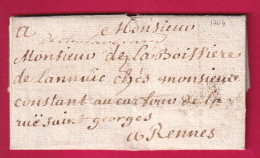 a Monsieur
1704
Monsieur de la Boissiere
de lannuic chés monsieur
constant au carfour de la
ruë saint georges
a Rennes